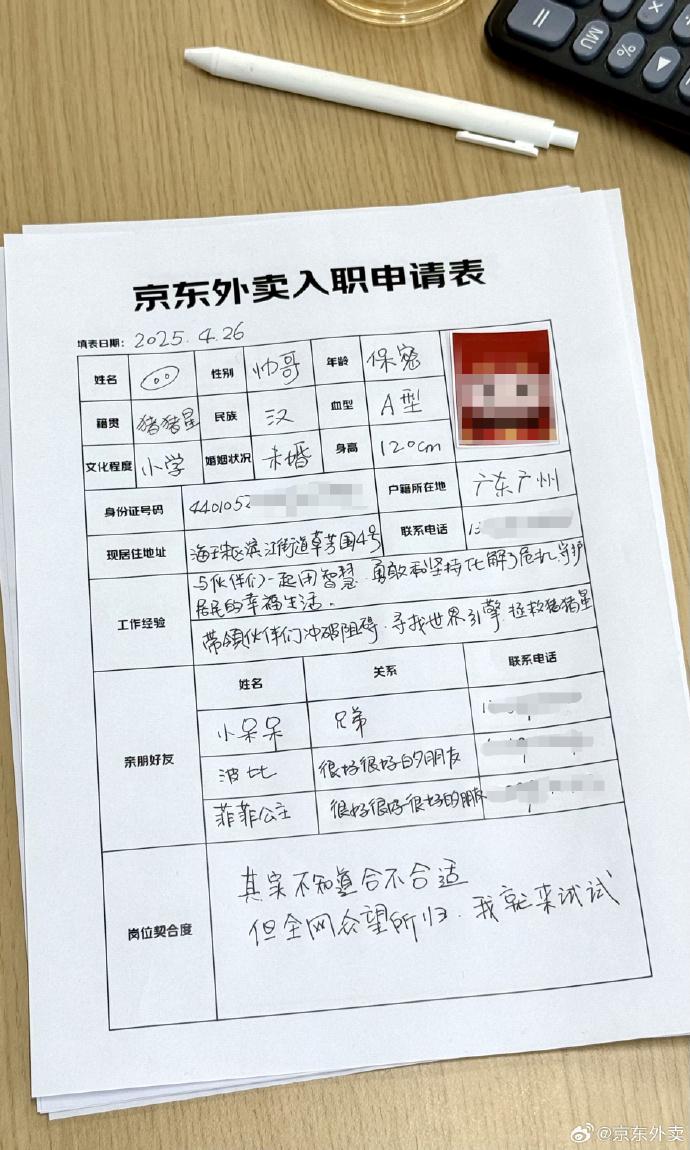 京东外卖入职申请表
填表日期: 2025.4.26
姓名 性别 帅哥 年龄 保密
籍贯 猪猪星 民族 汉 血型 A型
文化程度 小学 婚姻状况 未婚 身高 120cm
身份证号码 4401052 户籍所在地 广东广州
现居住地址 海珠区滨江街道草芳围4号 联系电话 13
工作经验 与伙伴们一起用智慧、勇敢和坚持化解了危机,守护
居民的幸福生活。
带领伙伴们冲破阻碍、寻找世界引擎 拯救猪猪星
亲朋好友 姓名 关系 联系电话
小呆呆 兄弟
波比 很好很好的朋友
菲菲公主 很好很好很好的朋友
岗位契合度 其实不知道合不合适
但全网众望所归、我就来试试
= MU % ▼
@京东外卖